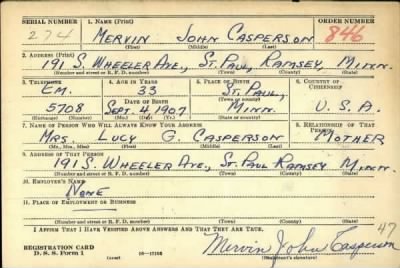 SERIAL NUMBER 1. NAME (Print) ORDER NUMBER
274 MERVIN JOHN CASPERSON 846
(First) (Middle) (Last)
2. ADDRESS (Print)
191 S. WHEELER AVE., ST. PAUL, RAMSEY, MINN.
(Number and street or R. F. D. number) (Town) (County) (State)
3. TELEPHONE 4. AGE IN YEARS 5. PLACE OF BIRTH 6. COUNTRY OF CITIZENSHIP
EM. 33 ST. PAUL,
(Town or county)
DATE OF BIRTH
5708 SEPT. 4, 1907 MINN. U.S.A.
(Exchange) (Number) (Mo.) (Day) (Yr.) (State or country)
7. NAME OF PERSON WHO WILL ALWAYS KNOW YOUR ADDRESS 8. RELATIONSHIP OF THAT PERSON
MRS. LUCY G. CASPERSON MOTHER
(Mr., Mrs., Miss) (First) (Middle) (Last)
9. ADDRESS OF THAT PERSON
191 S. WHEELER AVE., ST. PAUL RAMSEY MINN.
(Number and street or R. F. D. number) (Town) (County) (State)
10. EMPLOYER'S NAME
NONE
11. PLACE OF EMPLOYMENT OR BUSINESS
(Number and street or R. F. D. number) (Town) (County) (State)
I AFFIRM THAT I HAVE VERIFIED ABOVE ANSWERS AND THAT THEY ARE TRUE. 47
REGISTRATION CARD
D. S. S. Form 1 (over) Mervin John Casperson
(Registrant's signature)